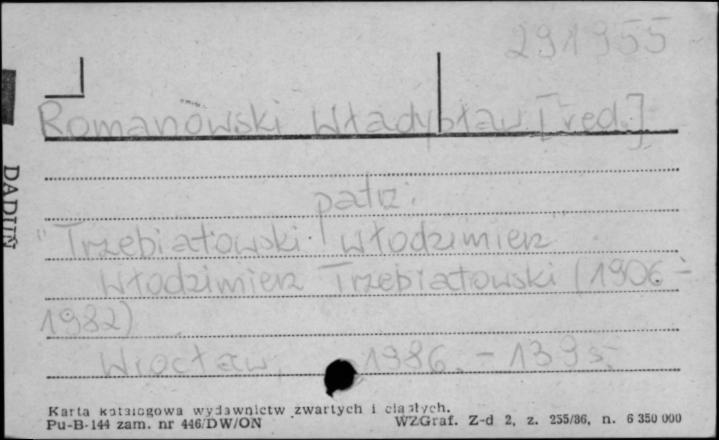 291955
Romanowski Władysław [red.]
patrz:
"Trzebiatowski Włodzimierz"
Włodzimierz Trzebiatowski (1906-
1982)
Wrocław, 1986. - 139 s.
Karta katalogowa wydawnictw zwartych i ciągłych.
Pu-B-144 zam. nr 446/DW/ON WZGraf. Z-d 2, z. 255/86, n. 6 350 000